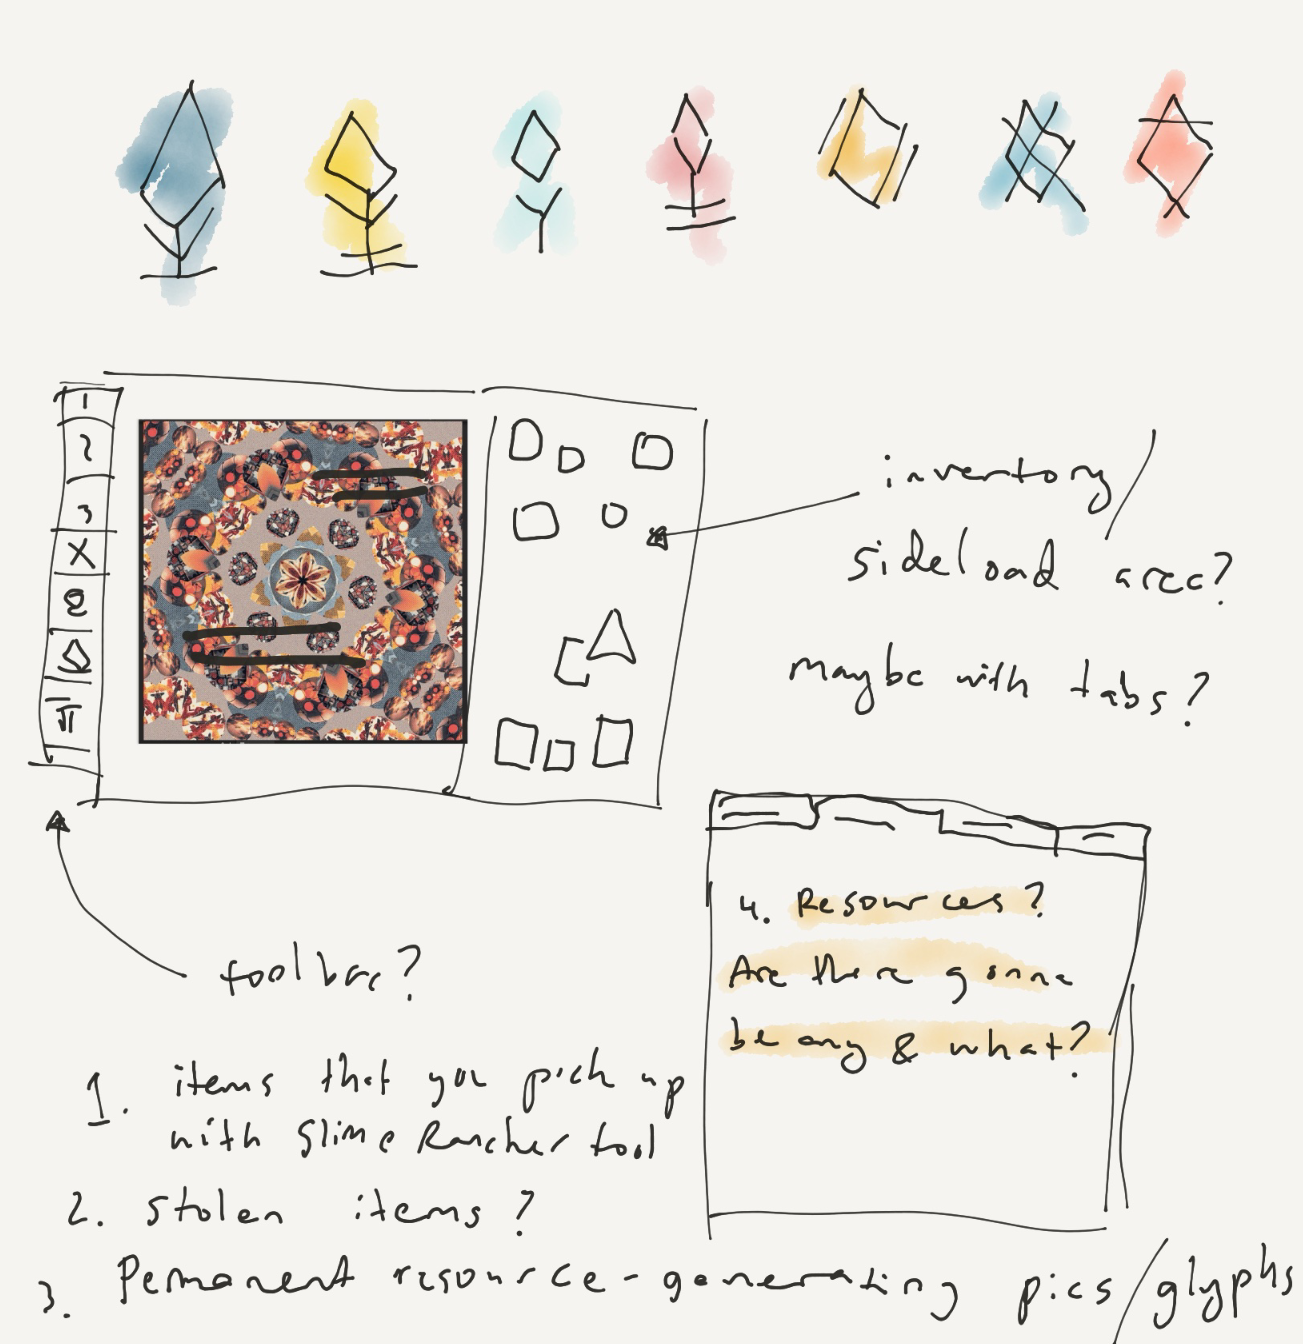 1
2
3
X
inventory/
sideload area?
maybe with tabs?
toolbar?
4. Resources?
Are there gonna
be any & what?
1. items that you pick up
with Slime Rancher tool
2. stolen items?
3. Permanent resource-generating pics/glyphs